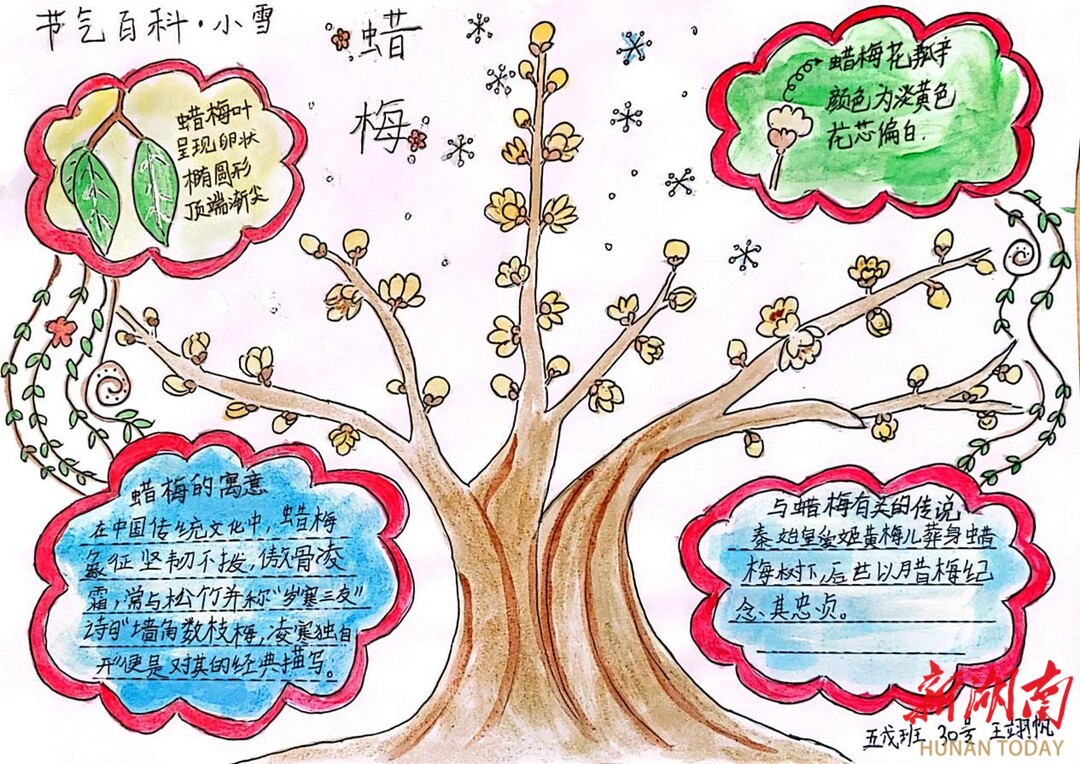 节气百科·小雪
蜡
梅
蜡梅叶
呈现卵状
椭圆形
顶端渐尖
蜡梅花瓢手
颜色为淡黄色
花芯偏白.
蜡梅的寓意
在中国传统文化中,蜡梅
象征坚韧不拔,傲骨凌
霜,常与松竹并称“岁寒三友”
诗曰“墙角数枝梅,凌寒独自
形便是对其的经典描写。
与蜡梅有关的传说
秦始皇爱姬黄梅儿葬身蜡
梅树下,后世以腊梅纪
念其忠贞。
五戊班 30号 王翊帆
新湖南
HUNAN TODAY